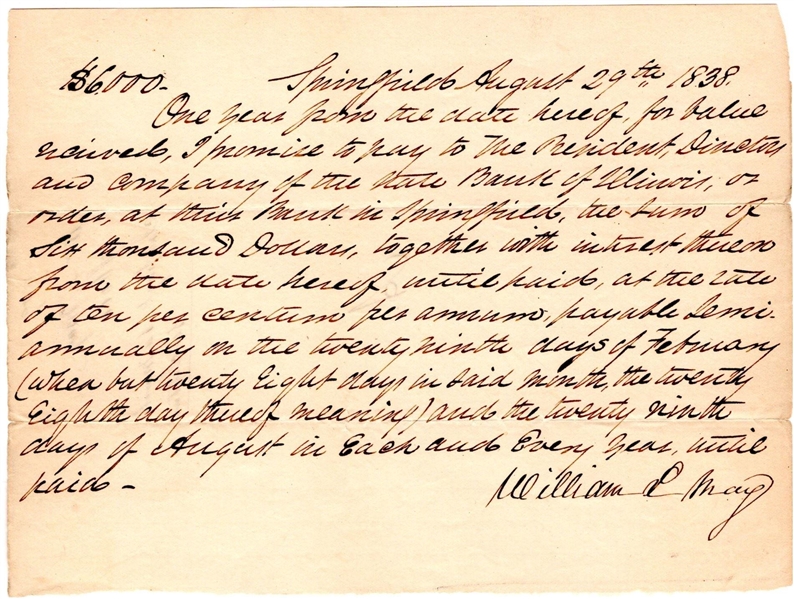 $6,000- Springfield August 29th 1838.
One year from the date hereof, for value
received, I promise to pay to The President, Directors
and Company of the State Bank of Illinois, or
order, at their Bank in Springfield, the sum of
Six thousand Dollars, together with interest thereon
from the date hereof, until paid, at the rate
of ten per centum per annum, payable Semi-
annually on the twenty ninth days of February
(when but twenty Eight days in said month, the twenty
Eighth day thereof meaning) and the twenty ninth
days of August in Each and Every year, until
paid - William L May